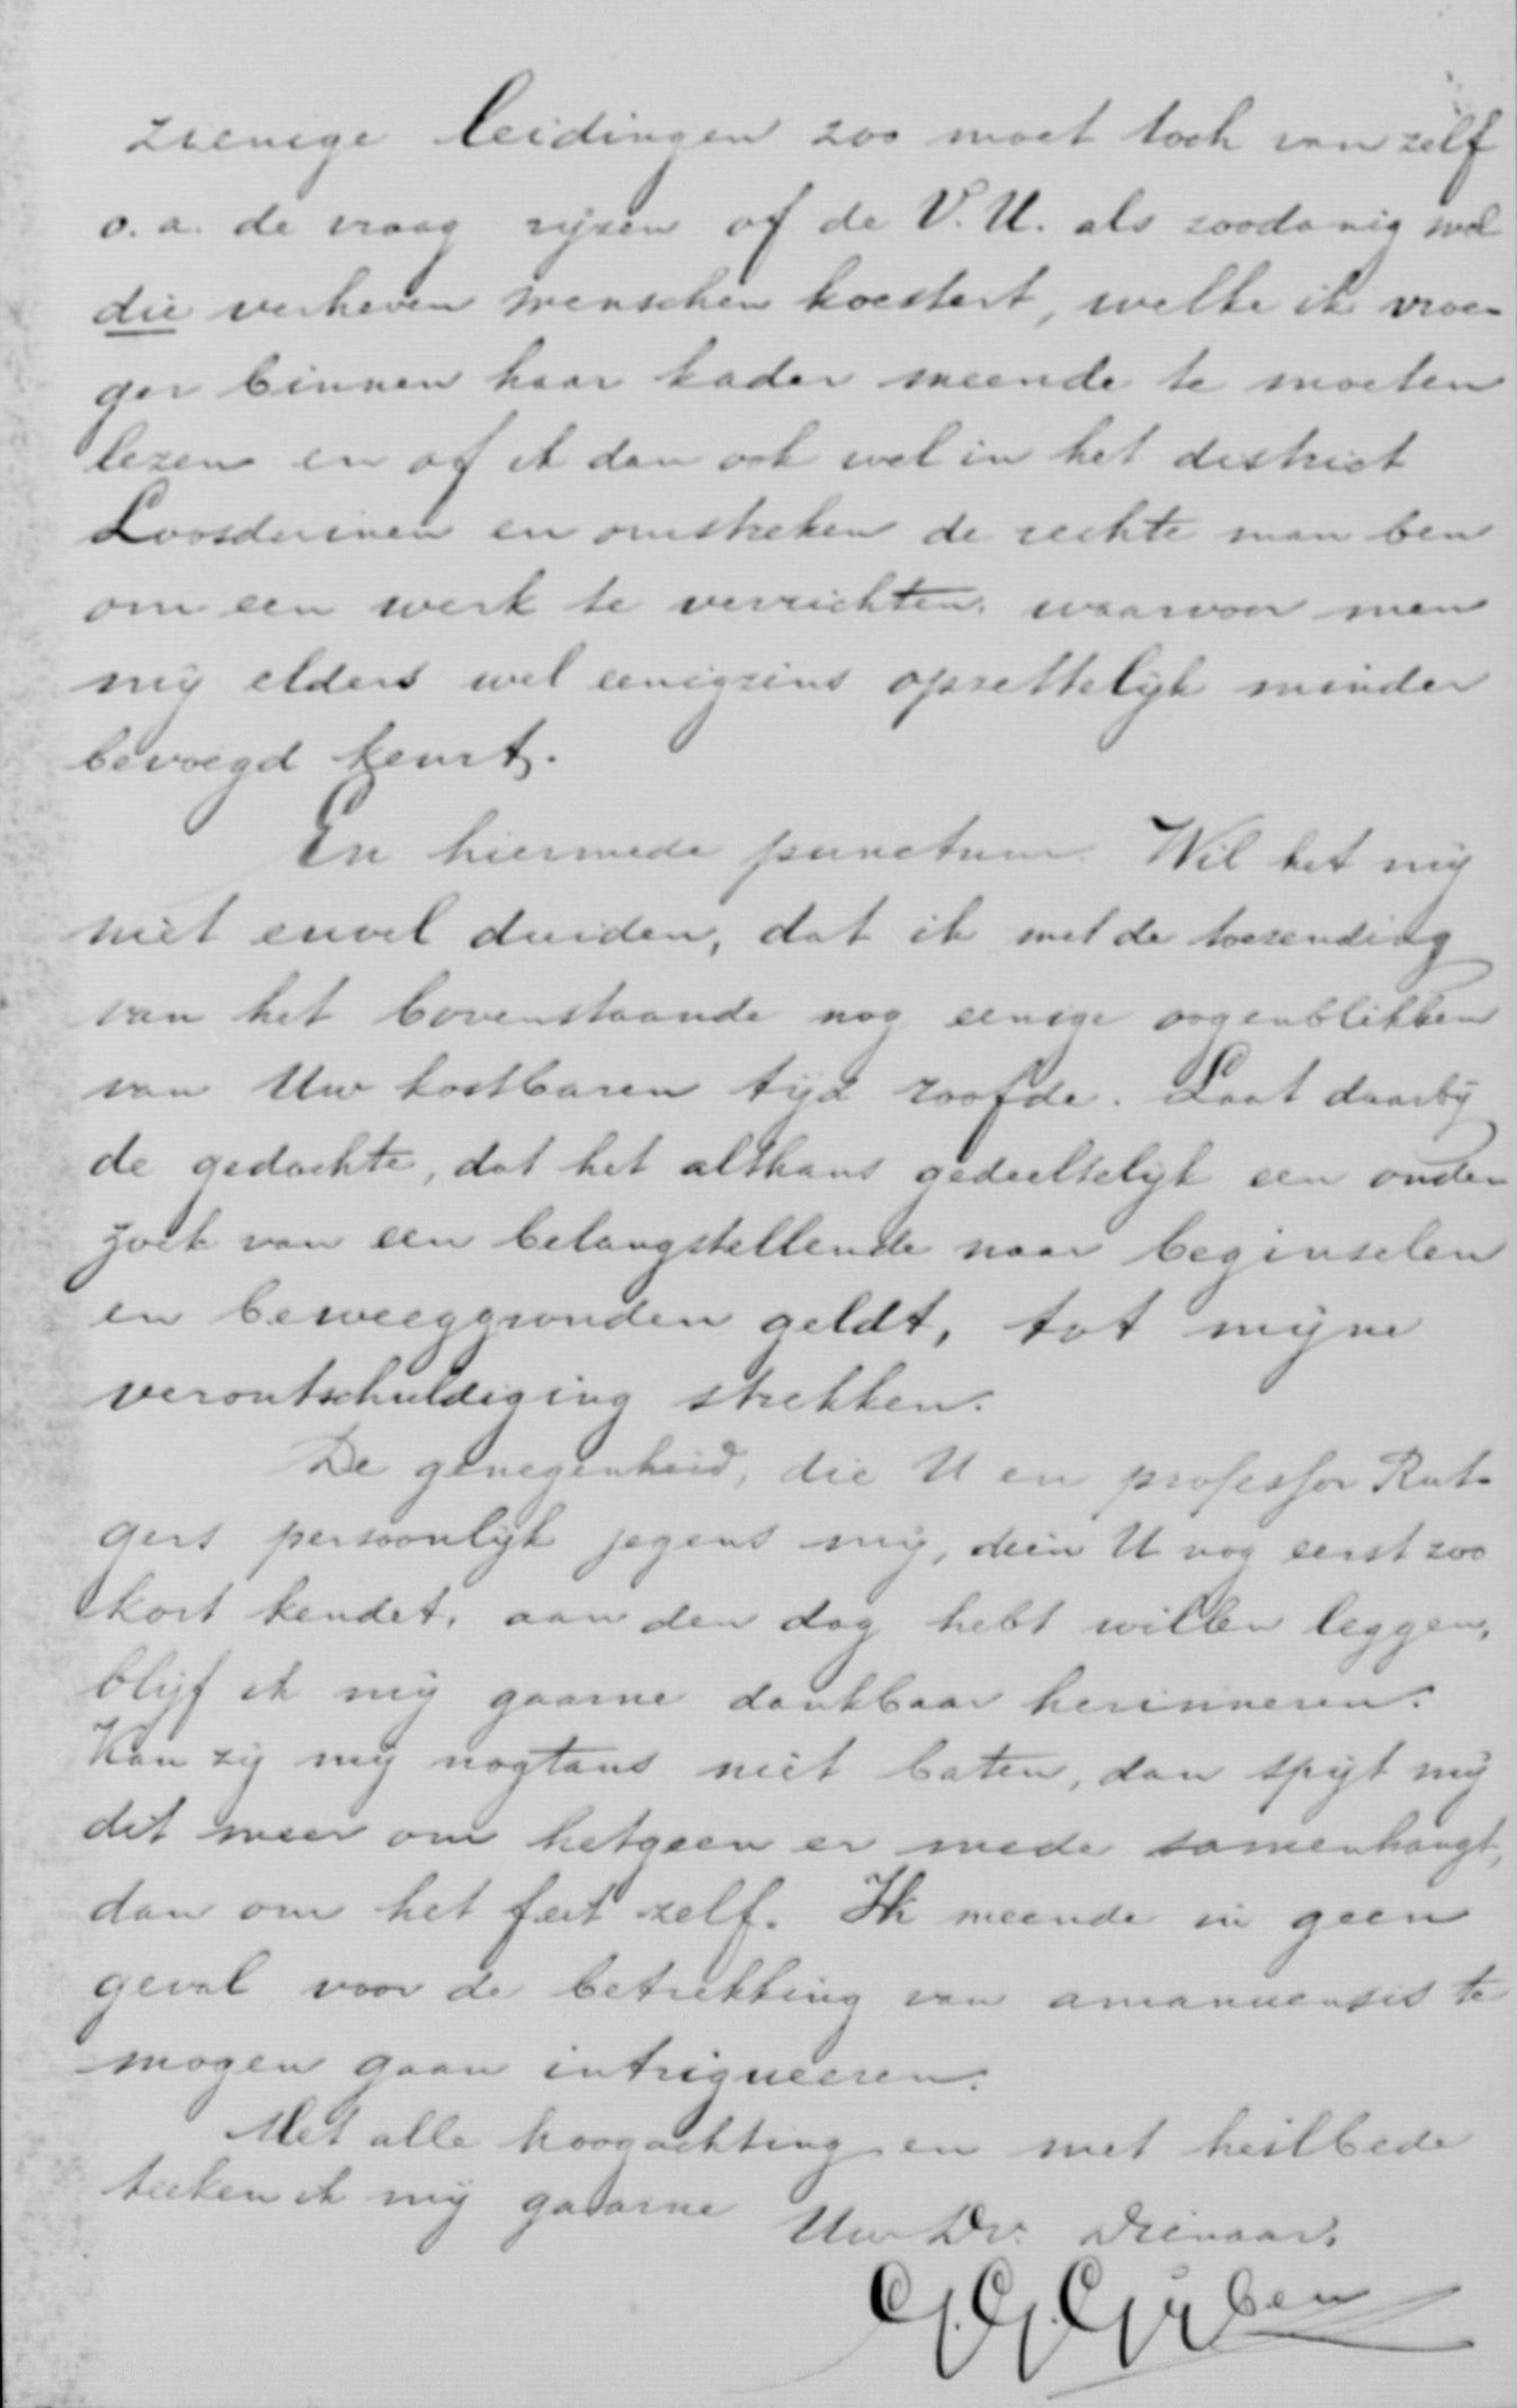 zienige leidingen zoo moet toch van zelf
o.a. de vraag rijzen of de V.U. als zoodanig wel
die verheven wenschen koestert, welke ik vroe-
ger binnen haar kader meende te moeten
lezen en of ik dan ook wel in het district
Loosduinen en omstreken de rechte man ben
om een werk te verrichten, waarvoor men
mij elders wel eenigzins opzettelijk minder
bevoegd keurt.
En hiermede punctum. Wil het mij
niet euvel duiden, dat ik met de toezending
van het bovenstaande nog eenige oogenblikken
van Uw kostbaren tijd roofde. Laat daarbij
de gedachte, dat het althans gedeeltelijk een onder-
zoek van een belangstellende naar beginselen
en beweeggronden geldt, tot mijne
verontschuldiging strekken.
De genegenheid, die U en professor Rut-
gers persoonlijk jegens mij, dien U nog eerst zoo
kort kendet, aan den dag hebt willen leggen,
blijf ik mij gaarne dankbaar herinneren.
Kan zij mij nogtans niet baten, dan spijt mij
dit meer om hetgeen er mede samenhangt,
dan om het feit zelf. Ik meende in geen
geval voor de betrekking van amanuensis te
mogen gaan intrigueeren.
Met alle hoogachting en met heilbede
teeken ik mij gaarne
Uw Dv. Dienaar,